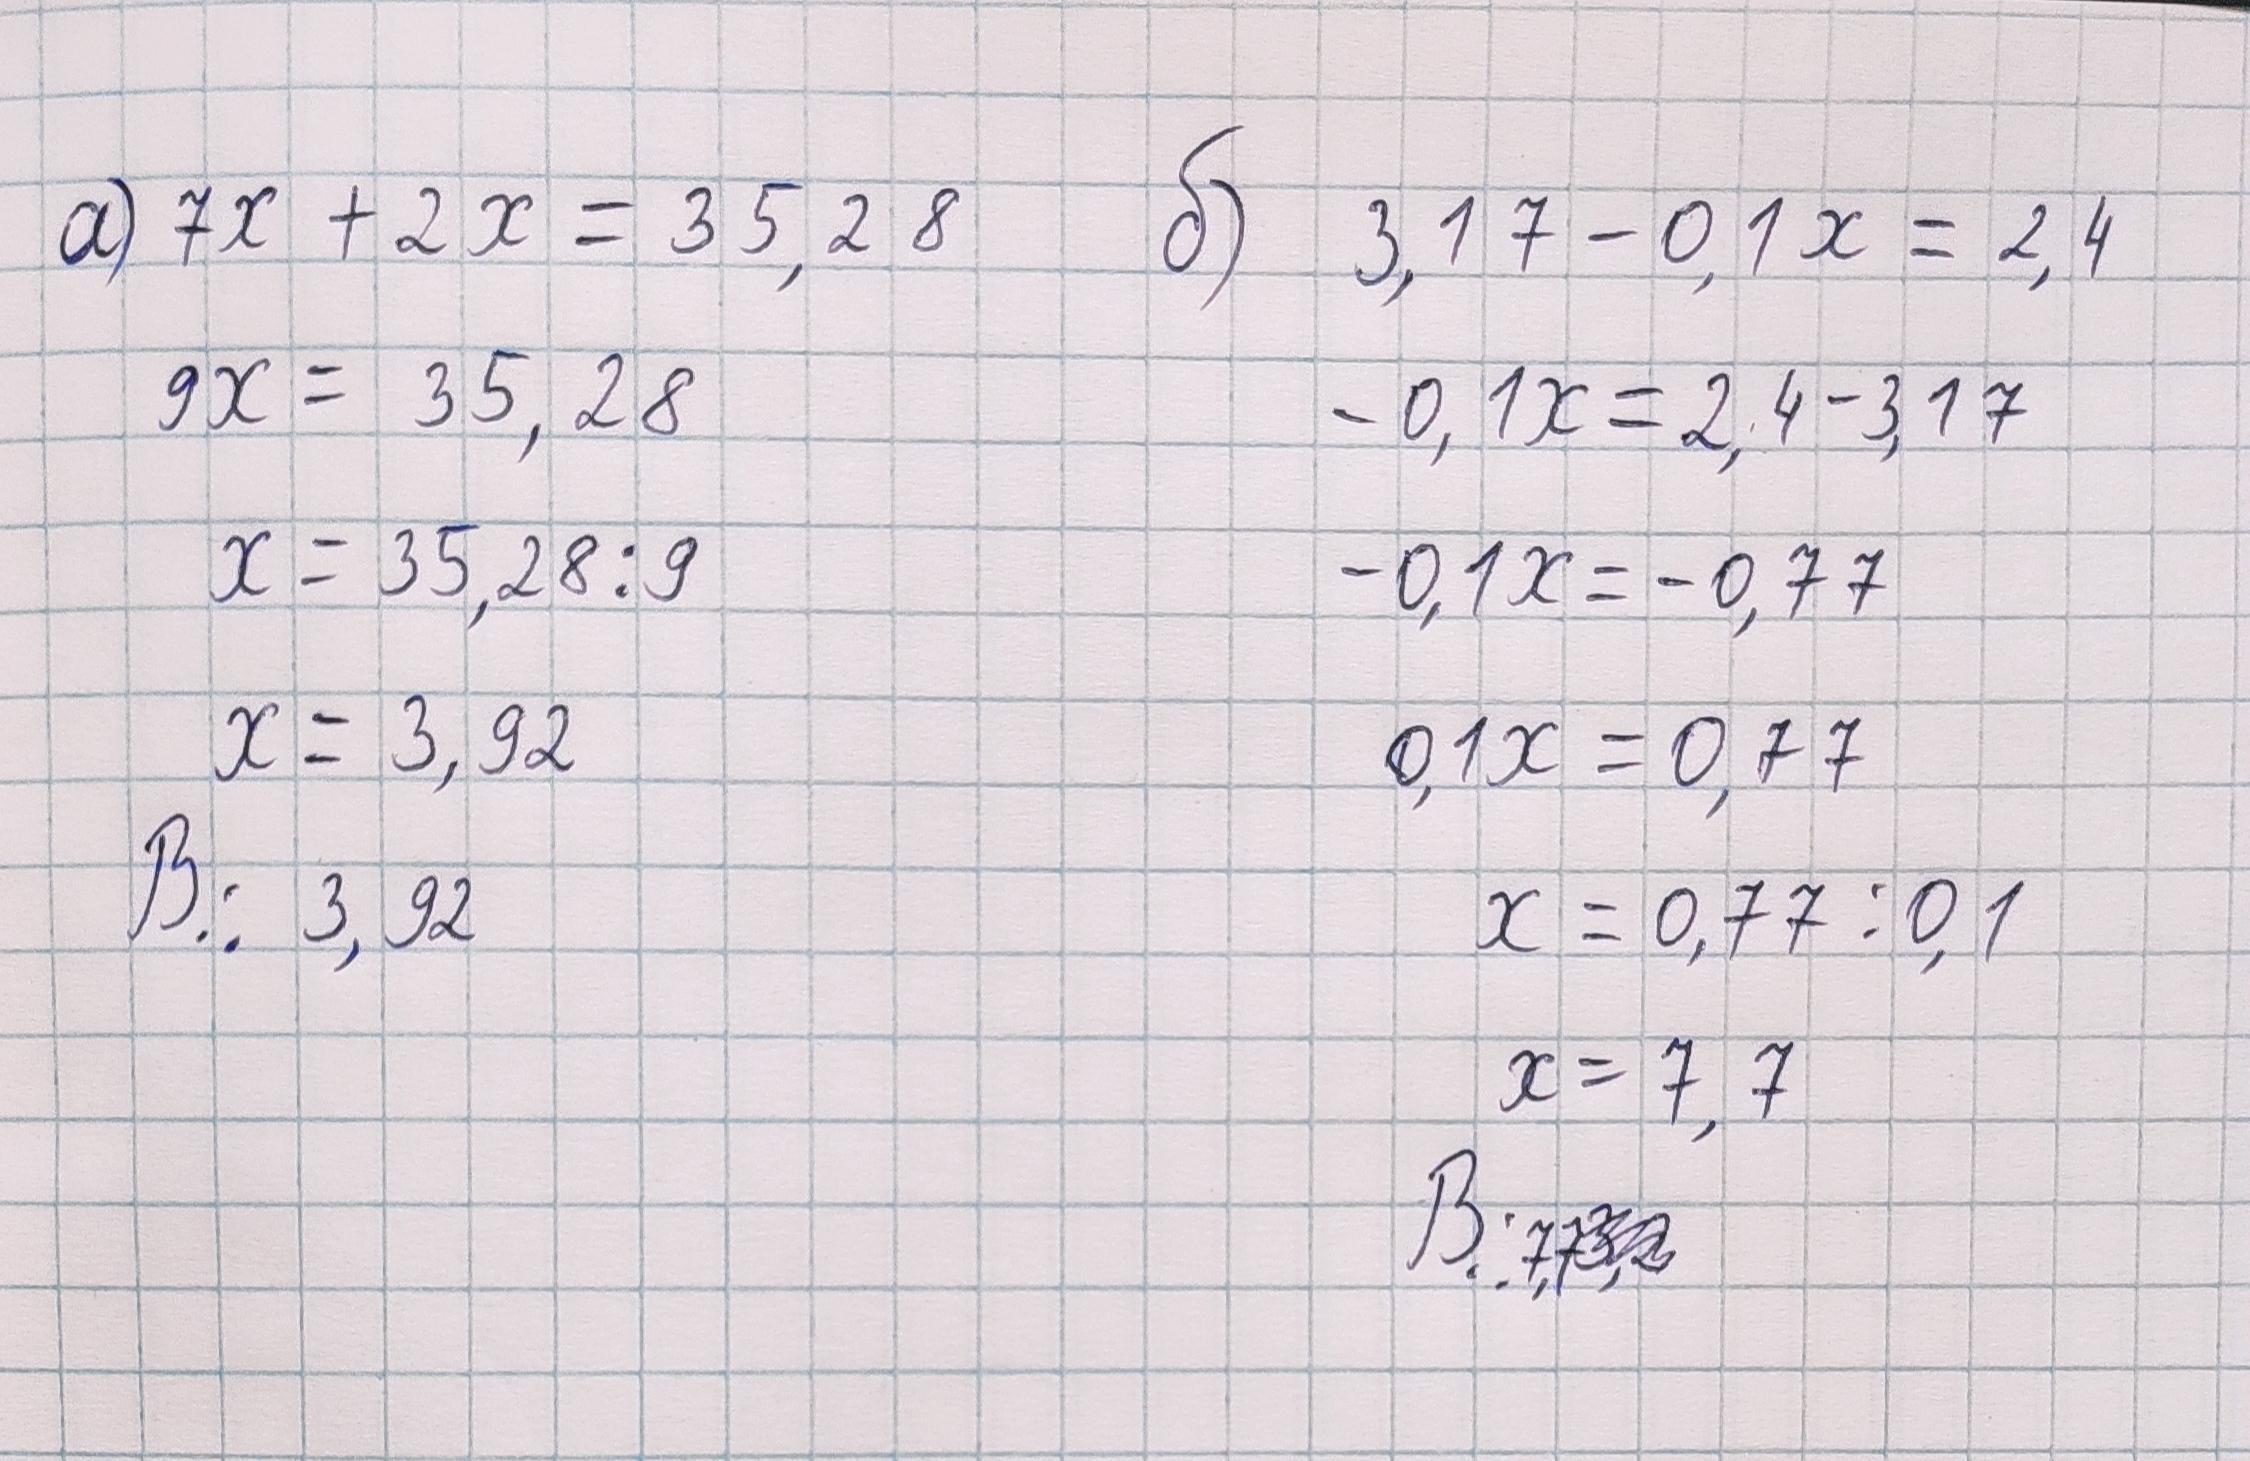 а) 7x + 2x = 35,28
9x = 35,28
x = 35,28:9
x = 3,92
В.: 3,92
б) 3,17 - 0,1x = 2,4
-0,1x = 2,4 - 3,17
-0,1x = -0,77
0,1x = 0,77
x = 0,77 : 0,1
x = 7,7
В.: 7,7